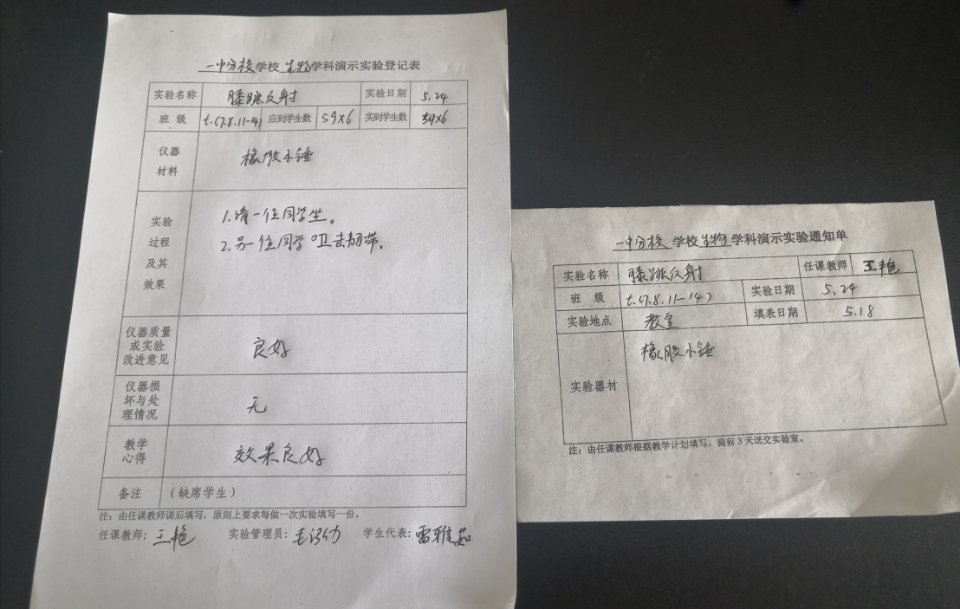 一中分校学校生物学科演示实验登记表
实验名称 膝跳反射 实验日期 5.24
班 级 七.(7.8.11-14) 应到学生数 59×6 实到学生数 59×6
仪器
材料
橡胶小锤
实验
过程
及其
效果
1.请一位同学坐。
2.另一位同学叩击韧带。
仪器质量
或实验
改进意见
良好
仪器损
坏与处
理情况
无
教学
心得
效果良好
备注 (缺席学生)
注:由任课教师课后填写,原则上要求每做一次实验填写一份。
任课教师:王艳 实验管理员: 学生代表:雷雅茹
一中分校 学校生物 学科演示实验通知单
实验名称 膝跳反射 任课教师 王艳
班 级 七.(7.8.11-14) 实验日期 5.24
实验地点 教室 填表日期 5.18
实验器材 橡胶小锤
注:由任课教师根据教学计划填写,提前3天送交实验室。